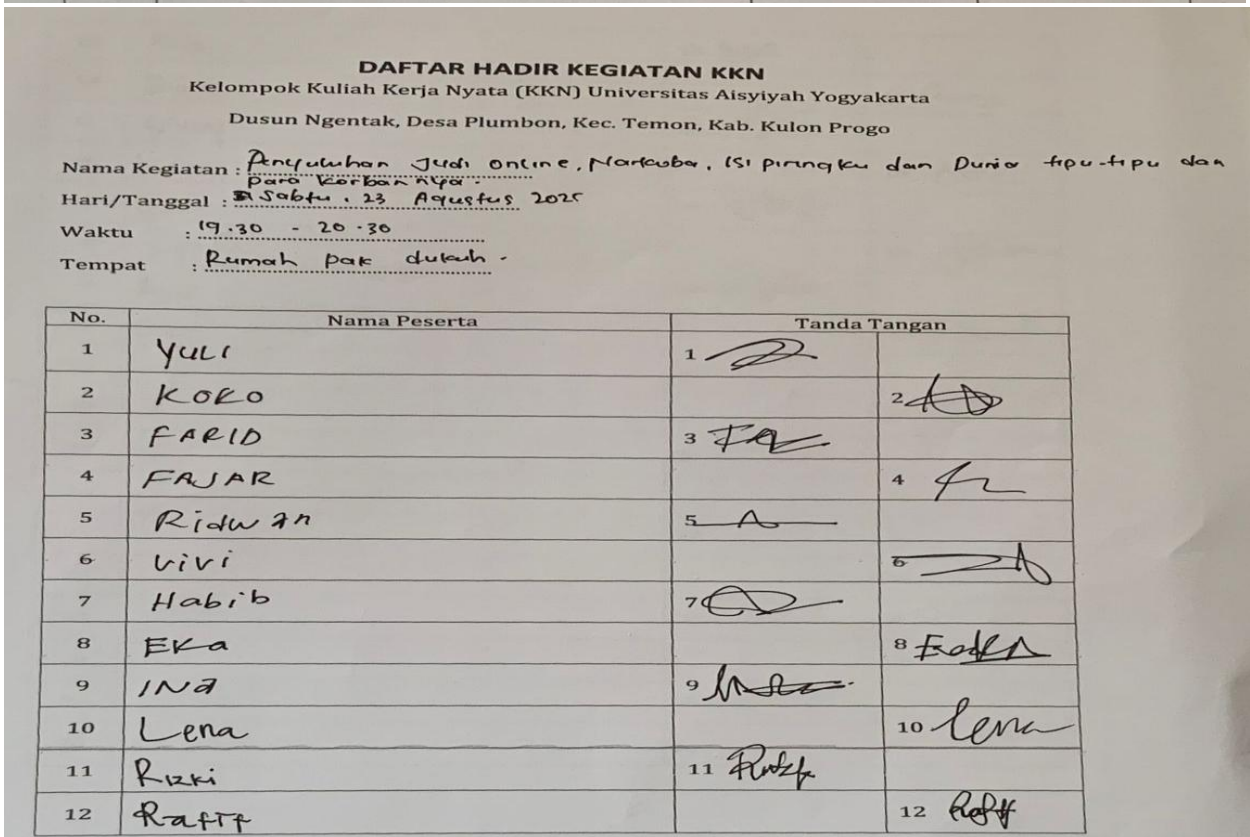 DAFTAR HADIR KEGIATAN KKN
Kelompok Kuliah Kerja Nyata (KKN) Universitas Aisyiyah Yogyakarta
Dusun Ngentak, Desa Plumbon, Kec. Temon, Kab. Kulon Progo
Nama Kegiatan : Penyuluhan Judi online, Narkoba, Isi piringku dan Dunia tipu-tipu dan
para korban nya.
Hari/Tanggal : Sabtu, 23 Agustus 2025
Waktu : 19.30 - 20.30
Tempat : Rumah pak dukuh.
No. Nama Peserta Tanda Tangan
1 YULI 1
2 KOKO 2
3 FARID 3
4 FAJAR 4
5 Ridwan 5
6 Vivi 6
7 Habib 7
8 EKa 8
9 INa 9
10 Lena 10 Lena
11 Rizki 11
12 Rafif 12